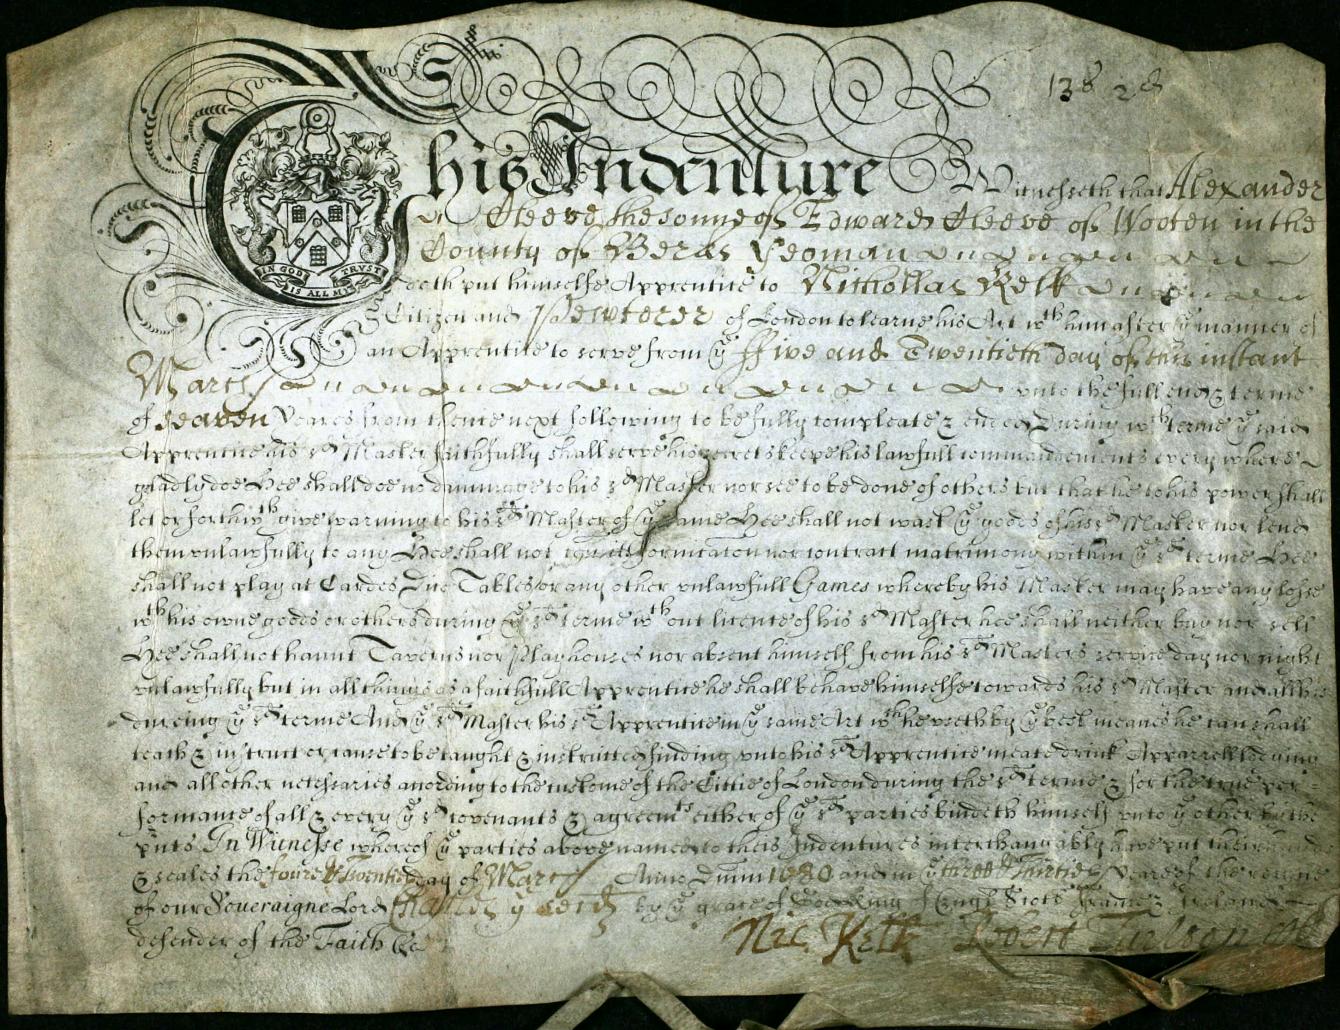 13828
This Indenture Witnesseth that Alexander
Cleeve the sonne of Edward Cleeve of Wooten in the
County of Berks Yeoman
IN GODE IS ALL MI TRVST
doth put himselfe Apprentice to Nichollas Kelk
Citizen and Pewterer of London to learne his Art wth him after ye manner of
an Apprentice to serve from ye ffive and Twentieth day of this instant
March vnto the full end & terme
of seaven Yeares from thence next following to be fully compleate & ended During wch terme ye said
Apprentice his sd Master faithfully shall serve his secrets keepe his lawfull commandements every where
gladly doe Hee shall doe no dammage to his sd Master nor see to be done of others but that he to his power shall
let or forthwth give warning to his sd Master of ye same Hee shall not wast ye goods of his sd Master nor lend
them vnlawfully to any Hee shall not comitt fornicacon nor contract matrimony within ye sd terme Hee
shall not play at Cardes Dice Tables or any other vnlawfull Games whereby his Master may have any losse
wth his owne goods or others during ye sd terme wthout licence of his sd Master hee shall neither buy nor sell
Hee shall not haunt Taverns nor Playhouses nor absent himself from his sd Masters service day nor night
vnlawfully but in all things as a faithfull Apprentice he shall behave himselfe towards his sd Master and all his
dureing ye sd terme And ye sd Master his sd Apprentice in ye same Art wch he vseth by ye best meanes he can shall
teach & instruct or cause to be taught & instructed finding vnto his sd Apprentice meate drink Apparrell lodging
and all other necessaries according to the custome of the Cittie of London during the sd terme & for the true per-
formance of all & every ye sd covenants & agreemts either of ye sd parties bindeth himself vnto ye other by these
p'nts In Witnesse whereof ye parties above named to theis Indentures interchangably have put their hands
& seales the foure & Twentie day of March Anno Dmni 1680 and in ye three & Thirtie Yeare of the reigne
of our Soveraigne Lord Charles ye Second by ye grace of God King of Engl Scotl France & Ireland
defender of the Faith &c Nic Kelk Robert